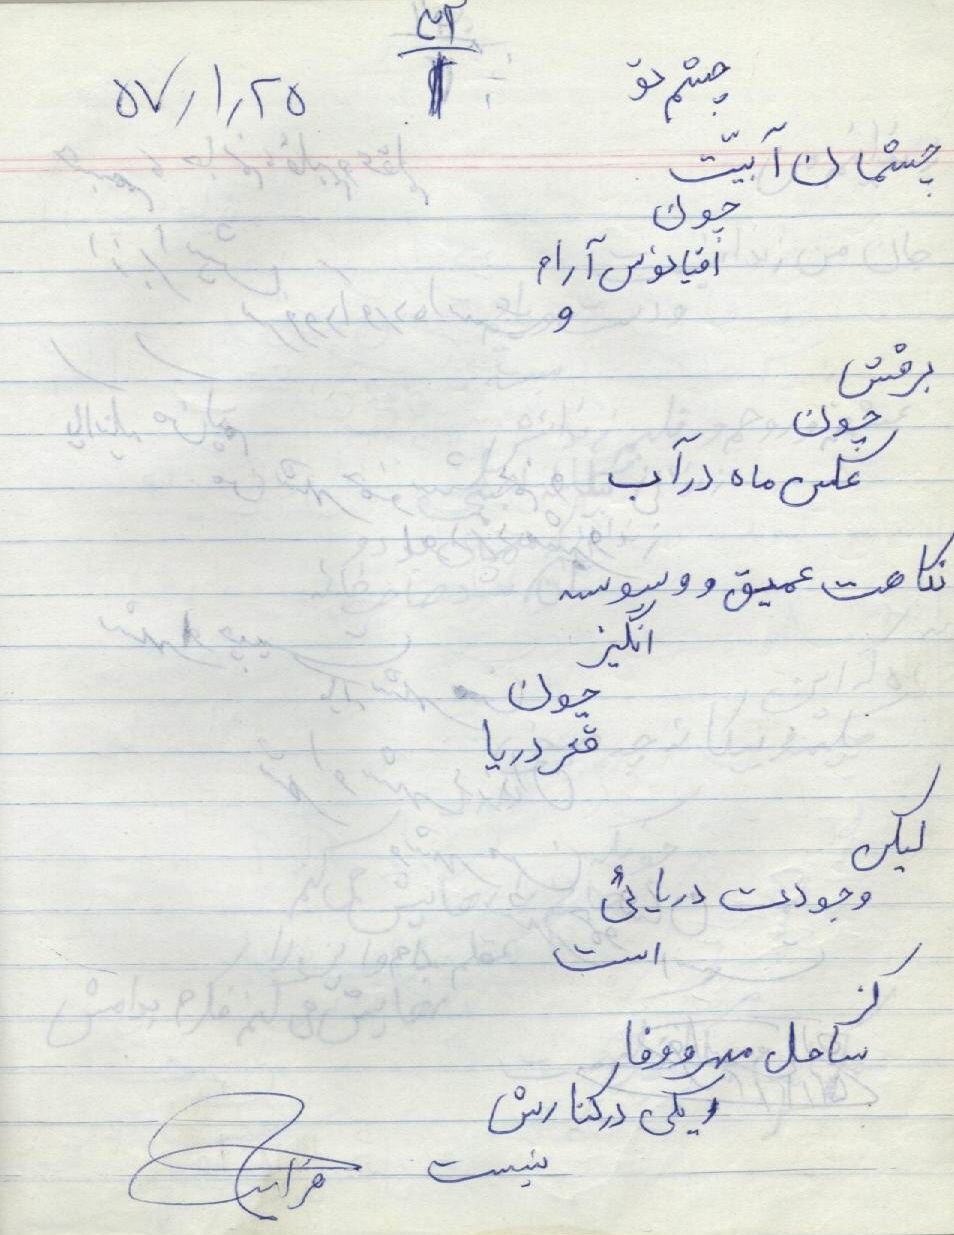 ۴۲
چشم تو
۵۷/۱/۲۵
چشمان آبیّت
چون
اقیانوس آرام
و
برقش
چون
عکس ماه در آب
نگاهت عمیق و وسوسه
انگیز
چون
قعر دریا
لیکن
وجودت دریائی
است
کز
ساحل مهر و وفا
ریگی در کنارش
نیست